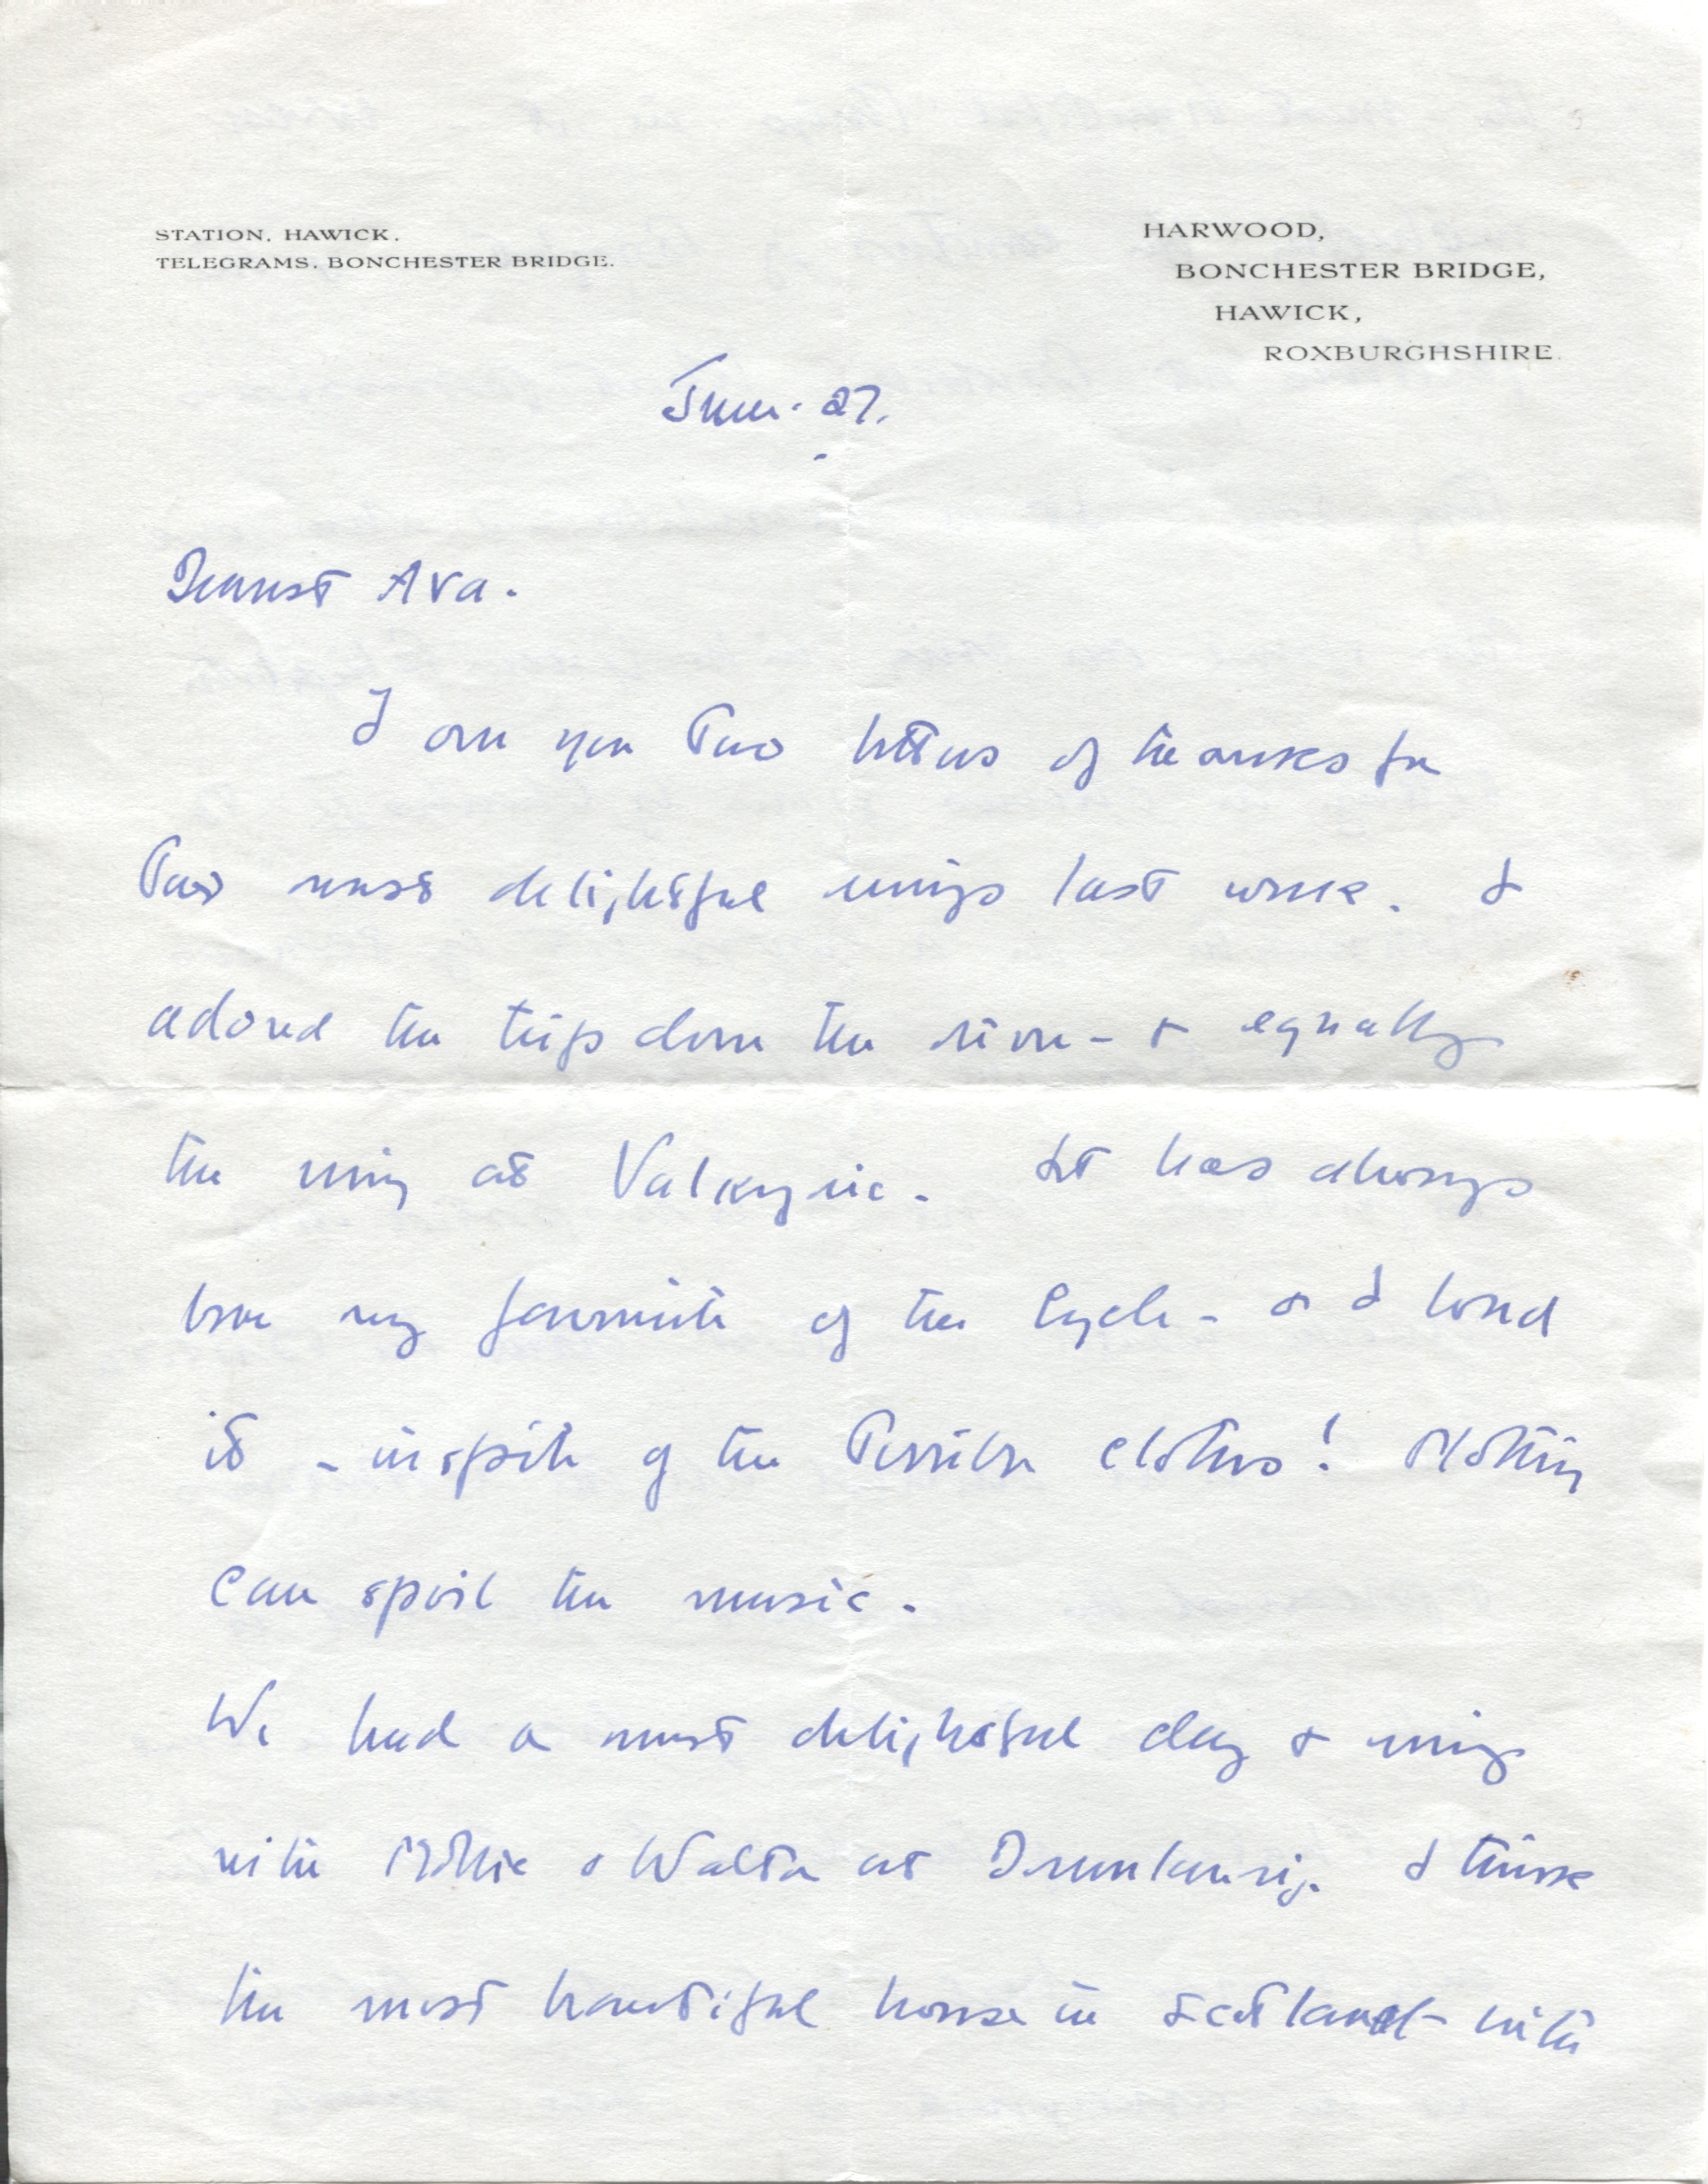 STATION, HAWICK.
TELEGRAMS, BONCHESTER BRIDGE.
HARWOOD,
BONCHESTER BRIDGE,
HAWICK,
ROXBURGHSHIRE.
June. 27.
Dearest Ava.
I owe you two letters of thanks for
two most delightful evings last week. I
adored the trip down the river - & equally
the eving at Valkyrie. It has always
been my favourite of the Cycle - & I loved
it - inspite of the terrible clothes! Nothing
can spoil the music.
We had a most delightful day & evings
with Mollie & Walter at Drumlanrig. I think
the most beautiful house in Scotland - with